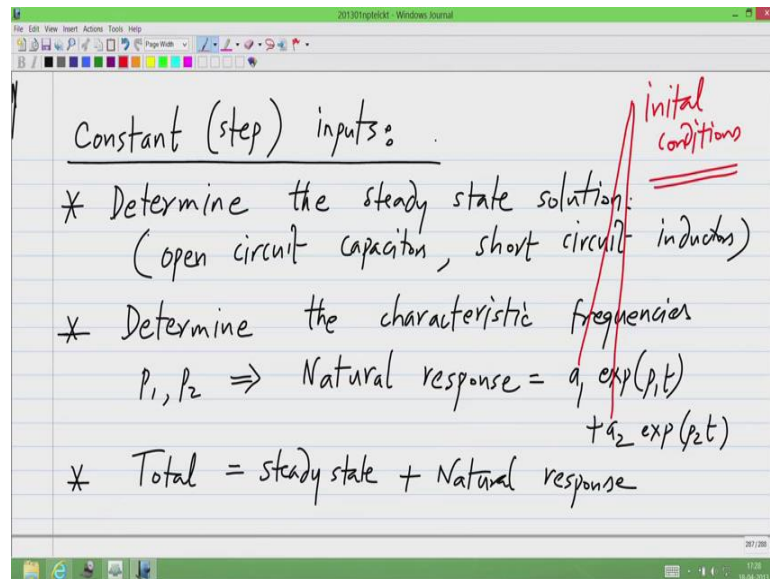 201301nptelckt - Windows Journal
File Edit View Insert Actions Tools Help
Page Width
B I
Constant (step) inputs:
inital
conditions
* Determine the steady state solution:
(open circuit capacitors, short circuit inductors)
* Determine the characteristic frequencies
p₁, p₂ ⇒ Natural response = a₁ exp(p₁t)
+ a₂ exp(p₂t)
* Total = steady state + Natural response
287/288
17:28